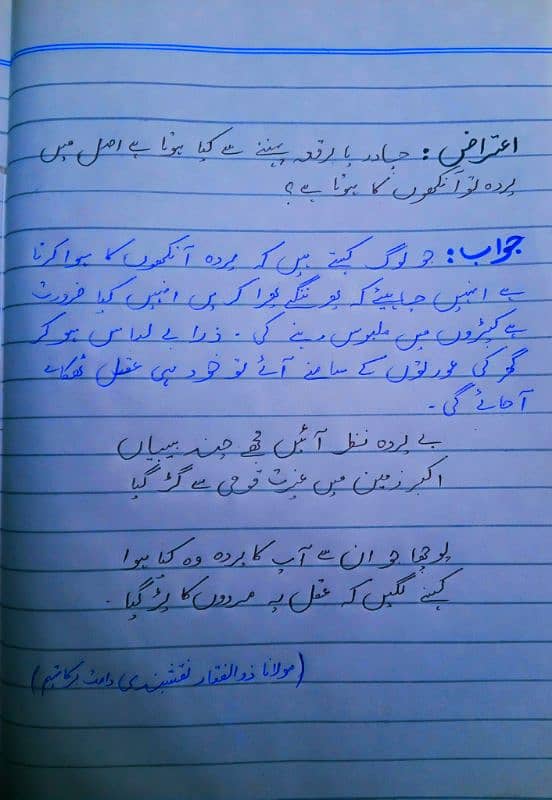 اعتراض: چادر یا برقعہ پہننے سے کیا ہوتا ہے اصل میں
پردہ تو آنکھوں کا ہوتا ہے؟
جواب: جو لوگ کہتے ہیں کہ پردہ آنکھوں کا ہوا کرتا
ہے انہیں چاہیئے کہ پھر ننگے پھرا کریں انہیں کیا ضرورت
ہے کپڑوں میں ملبوس رہنے کی۔ ذرا بے لباس ہو کر
گھر کی عورتوں کے سامنے آئے تو خود ہی عقل ٹھکانے
آجائے گی۔
بے پردہ نظر آئیں مجھے چند بیبیاں
اکبر زمین میں غیرت قومی سے گڑ گیا
پوچھا جو ان سے آپ کا پردہ وہ کیا ہوا
کہنے لگیں کہ عقل پہ مردوں کا پڑ گیا۔
(مولانا ذوالفقار نقشبندی دامت برکاتہم)